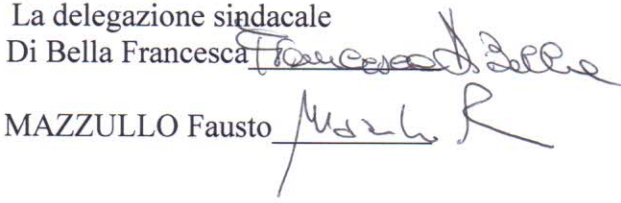 La delegazione sindacale
Di Bella Francesca Francesca Di Bella
MAZZULLO Fausto